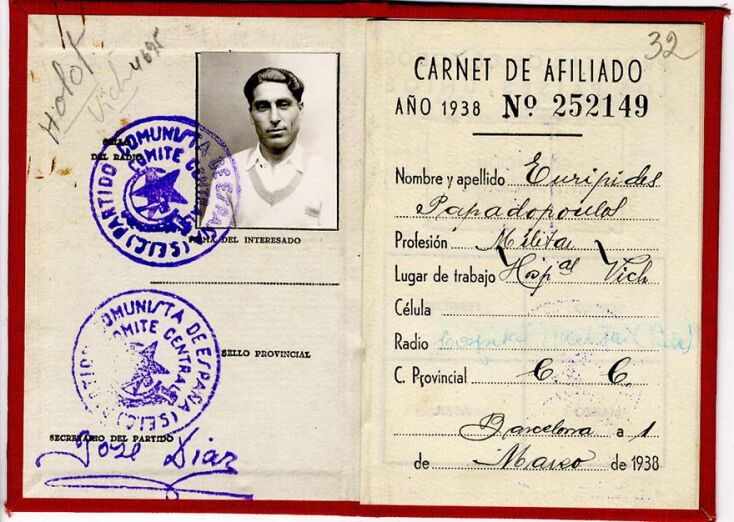 Holot
Vich 4695
SELLO
DEL RADIO
PARTIDO COMUNISTA DE ESPAÑA (S.E.I.C.)
COMITE CENTRAL
FIRMA DEL INTERESADO
PARTIDO COMUNISTA DE ESPAÑA (S.E.I.C.)
COMITE CENTRAL
SELLO PROVINCIAL
SECRETARIO DEL PARTIDO
José Díaz
32
CARNET DE AFILIADO
AÑO 1938 Nº 252149
Nombre y apellido Euripides
Papadopoulos
Profesión Militar
Lugar de trabajo Hospal Vich
Célula
Radio Hospital Militar (Vich)
C. Provincial C. C.
Barcelona a 1
de Marzo de 1938